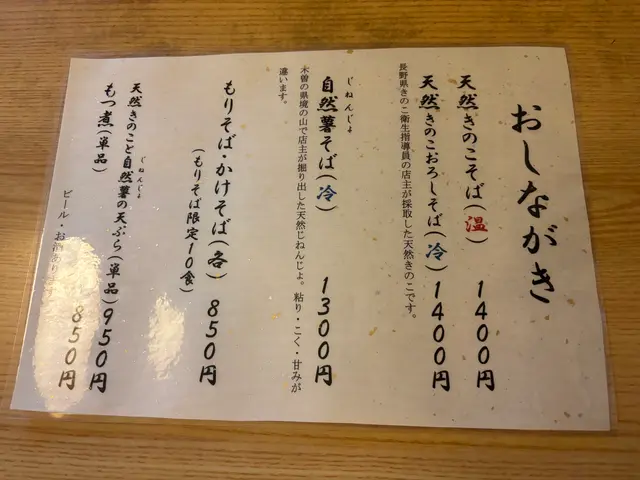 おしながき
天然きのこそば(温) 1400円
天然きのこおろしそば(冷) 1400円
長野県きのこ衛生指導員の店主が採取した天然きのこです。
じねんじょ
自然薯そば(冷) 1300円
木曽の県境の山で店主が掘り出した天然じねんじょ。粘り・こく・甘みが
違います。
もりそば・かけそば(各) 850円
(もりそば限定10食)
じねんじょ
天然きのこと自然薯の天ぷら(単品) 950円
もつ煮(単品) 850円
ビール・お酒あります